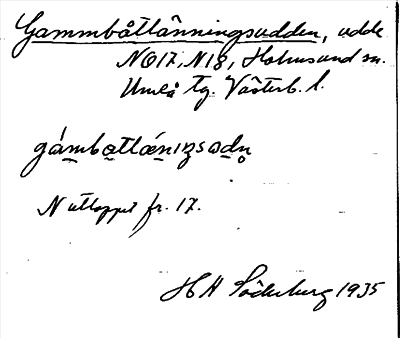 Gammbåtlänningsudden, udde
NO17, N18, Holmsund sn.
Umeå tg. Västerb. l.
gámbatlǽnıŋsɷdn̥
N utloppet fr. 17.
H H Söderberg 1935